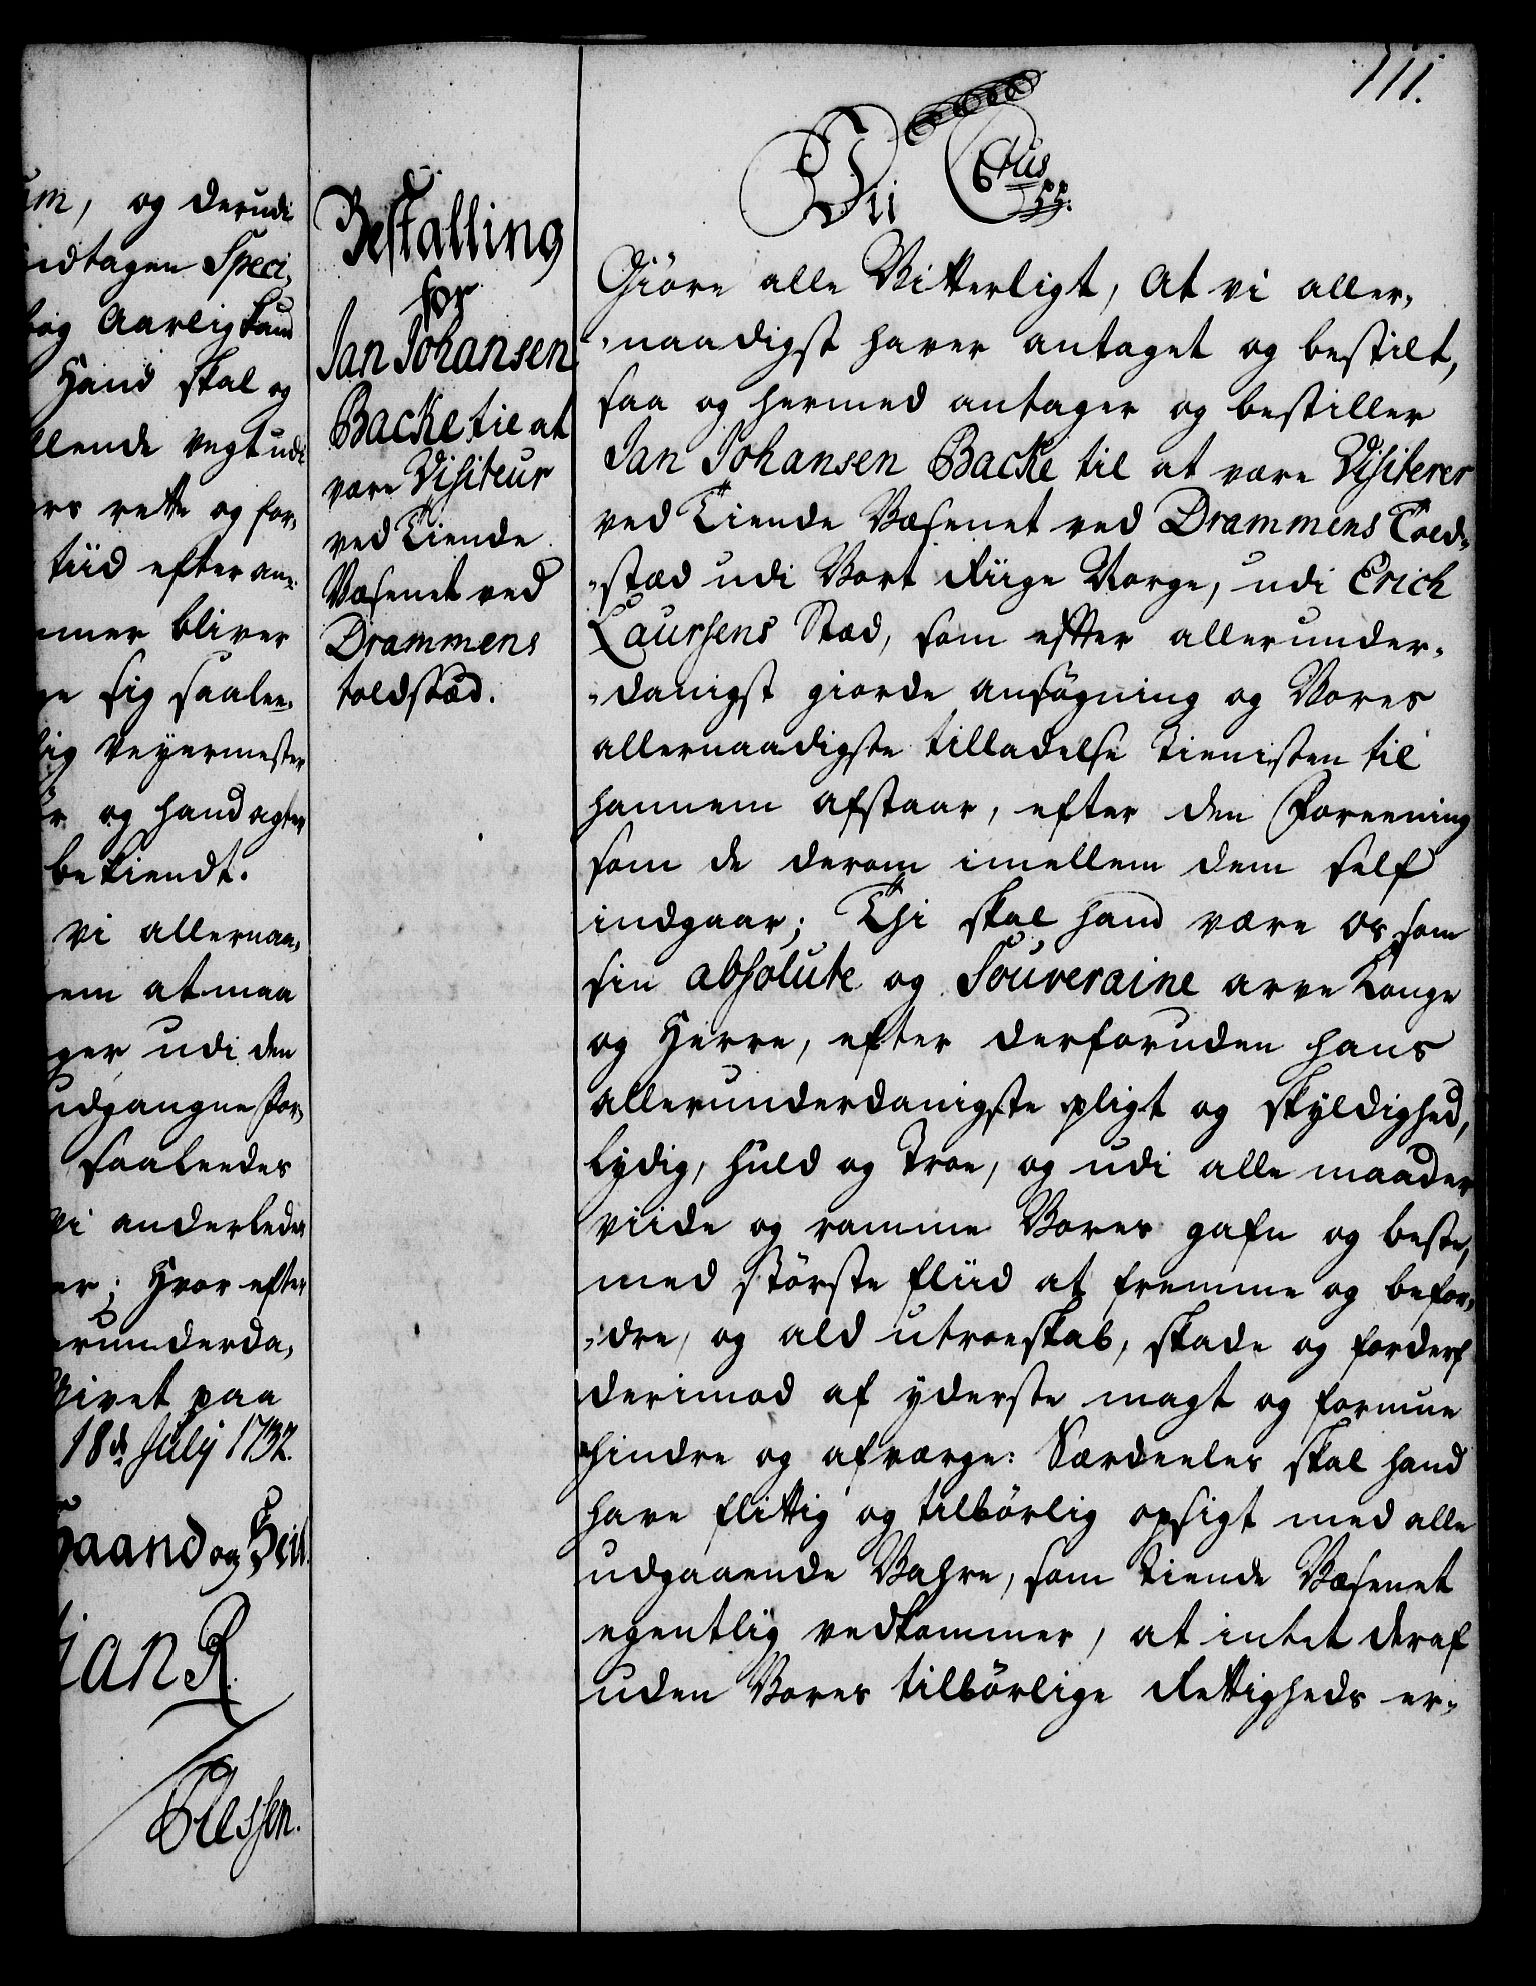 111.
um, og derudi
indtagen Speci
bog Aarlig kand
Hand skal og
llende vegt udi
rs rette og for,
tiid efter an
mmer bliver
ge sig saalee,
lig Veyermester
r og hand agter
bekiendt.
vi allernaa,
em at maa
ger udi den
udgangne For,
saaleedes
vi anderledes
er; Hvor efter
erunderda,
Givet paa
18de July 1732.
Haand og Seil.
tian R
Olessen.
Bestalling
for
Jan Johansen
Backe til at
være Visiteur
ved Tiende
Væsenet ved
Drammens
toldstæd.
Vii Ctus 6tus
Giöre alle Vitterligt, At vi aller,
,naadigst haver antaget og bestilt,
saa og hermed antager og bestiller
Jan Johansen Backe til at være Visiterer
ved Tiende Væsenet ved Drammens Told,
,stæd udi Vort Riige Norge, udi Erich
Laursens Stæd, som efter allerunder,
,danigst giorde ansögning og Vores
allernaadigste tilladelse Tienisten til
hannem afstaar, efter den Foreening
som de derom imellem dem self
indgaar; Thi skal hand være os som
sin absolute og Souveraine arve Konge
og Herre, efter derforuden hans
allerunderdanigste pligt og skyldighed,
lydig, huld og Troe, og udi alle maader
viide og ramme Vores gafn og beste,
med störste fliid at fremme og befor,
,dre, og ald utroeskab, skade og forderf
derimod af yderste magt og formue
hindre og afværge: Særdeeles skal hand
have flittig og tilbörlig opsigt med alle
udgaaende Vahre, som Tiende Væsenet
egentlig vedkommer, at intet deraf
uden Vores tilbörlige Rettigheds er,